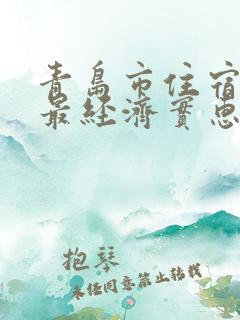 青島市住宿
最經濟實惠
抱琴
未經同意禁止轉載